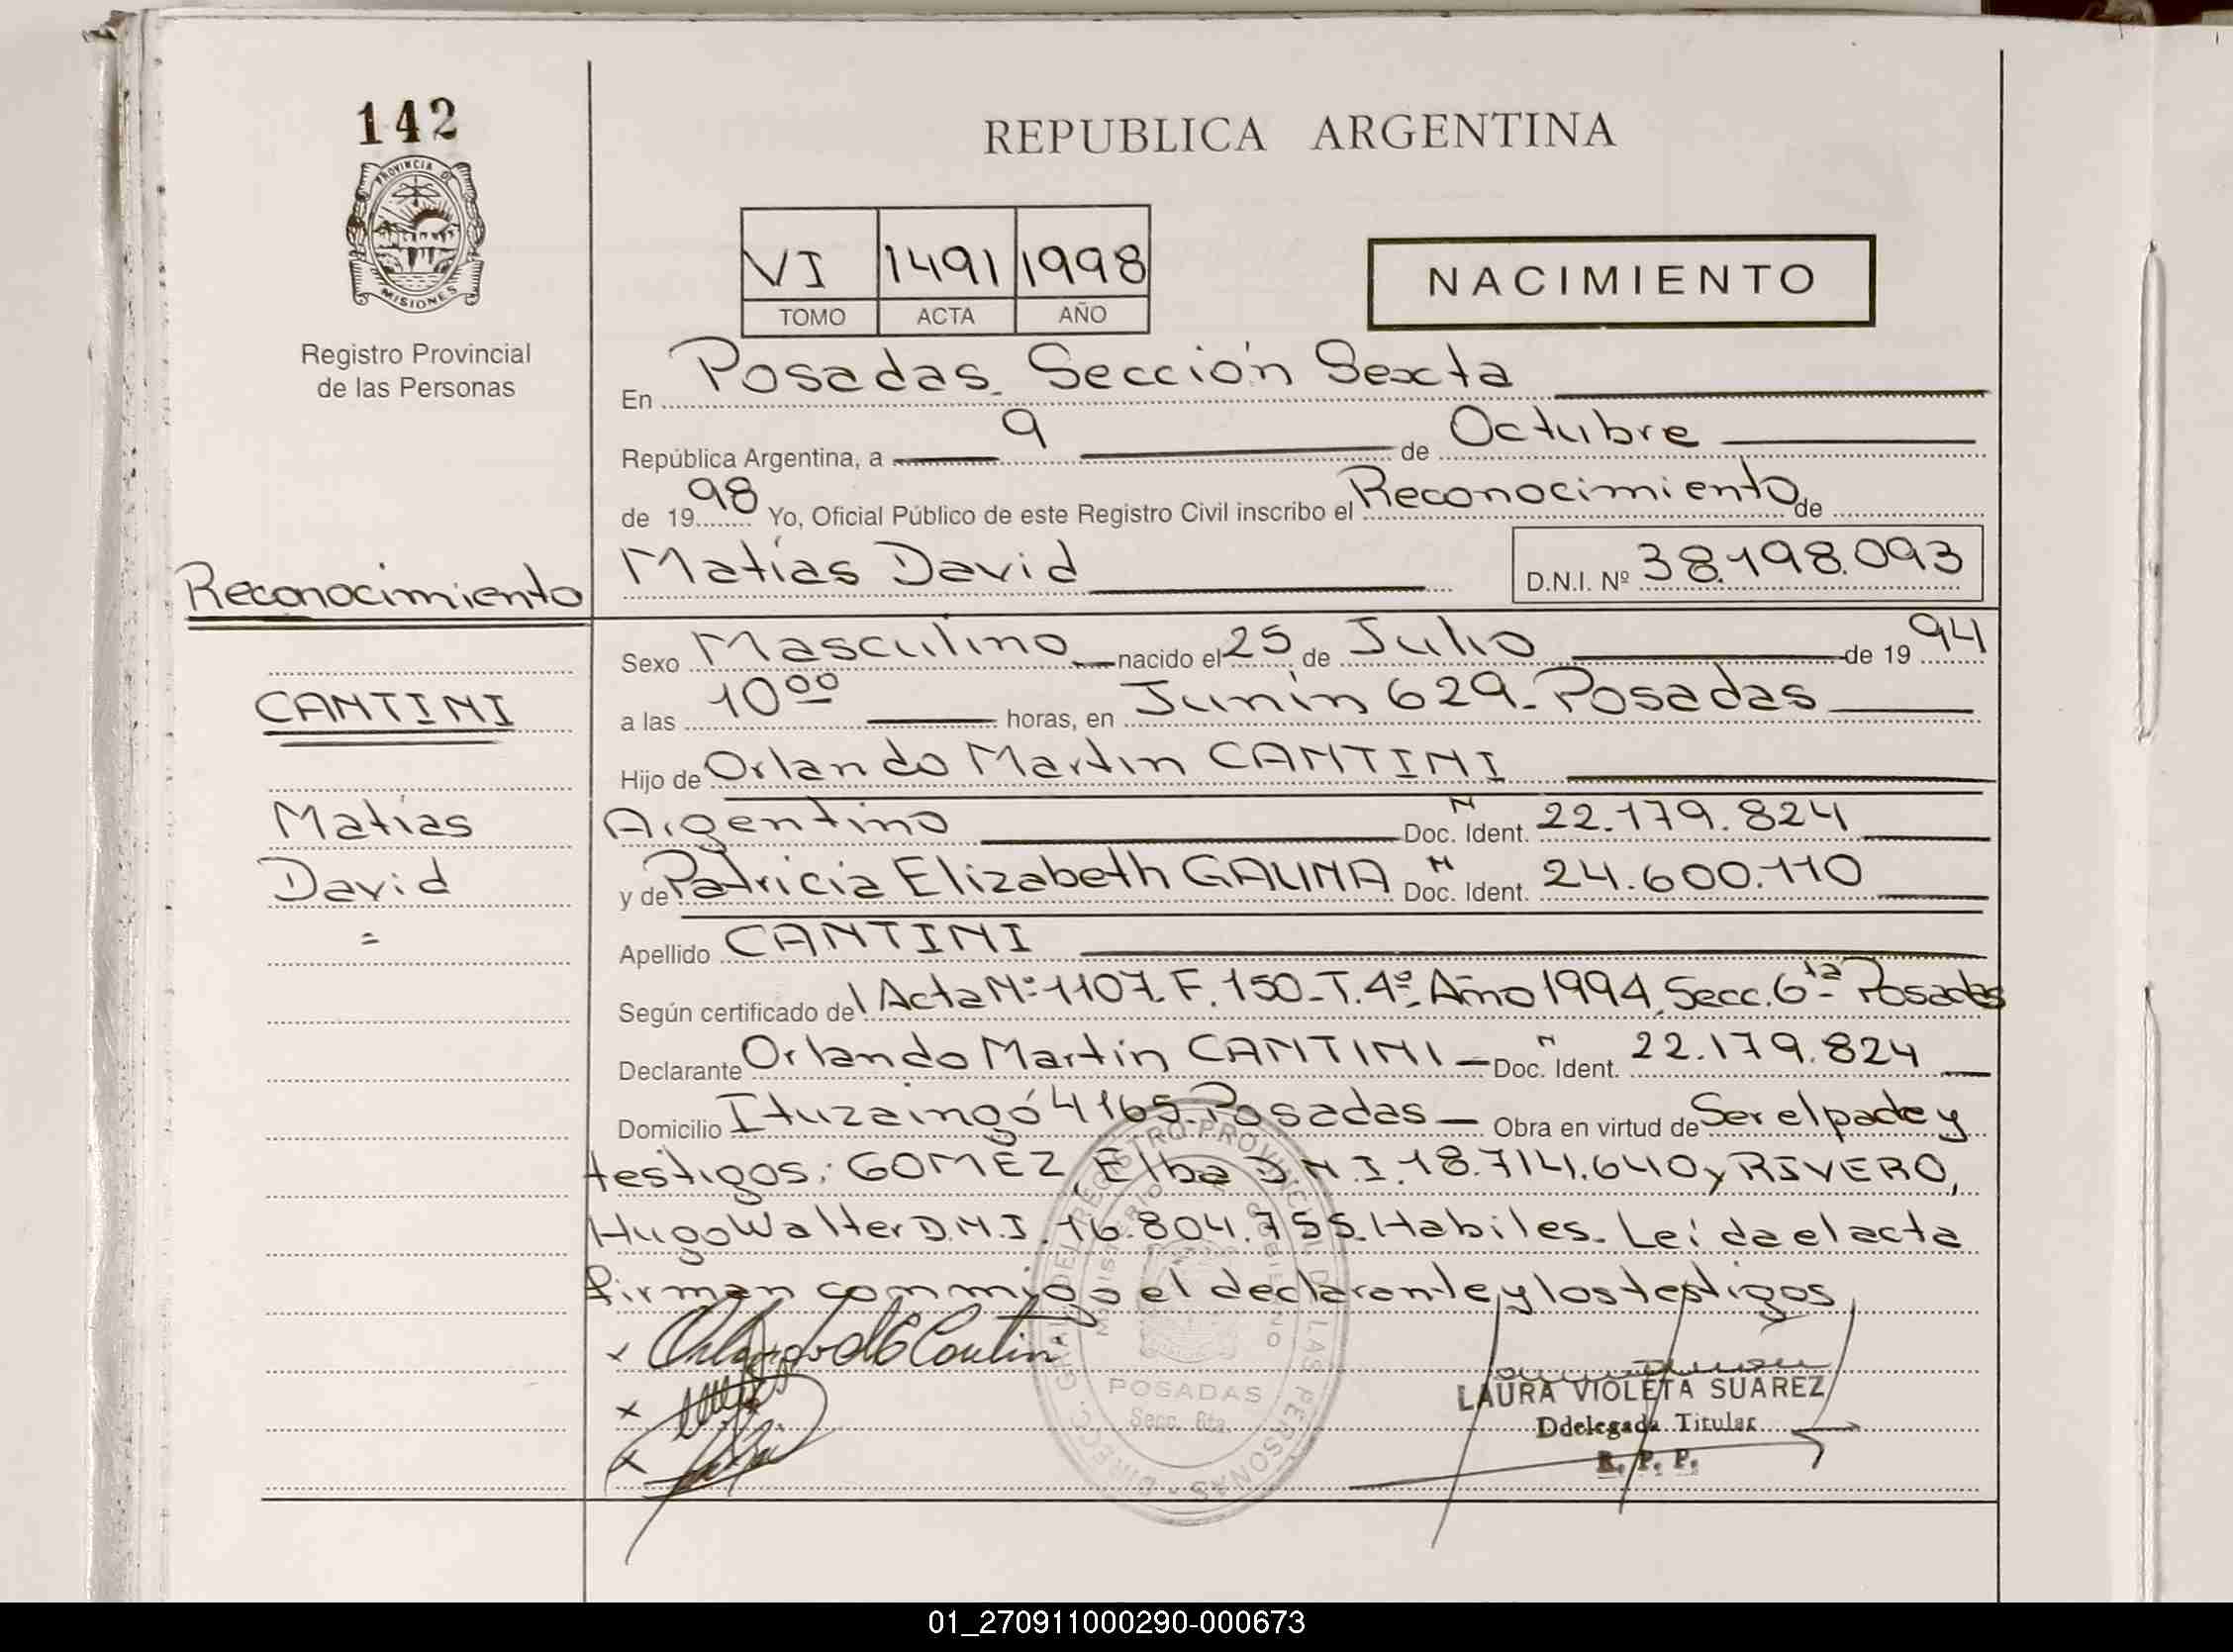 142
PROVINCIA DE
MISIONES
Registro Provincial
de las Personas
REPUBLICA ARGENTINA
VI 1491 1998
TOMO ACTA AÑO
NACIMIENTO
En Posadas. Sección Sexta
República Argentina, a 9 de Octubre
de 1998 Yo, Oficial Público de este Registro Civil inscribo el Reconocimiento de
Matías David D.N.I. Nº 38.198.093
Reconocimiento
CANTINI
Matías
David
=
Sexo Masculino nacido el 25 de Julio de 1994
a las 10 00 horas, en Junín 629- Posadas
Hijo de Orlando Martín CANTINI
Argentino N Doc. Ident. 22.179.824
y de Patricia Elizabeth GAUNA N Doc. Ident. 24.600.110
Apellido CANTINI
Según certificado del Acta Nº 1107. F. 150- T. 4º- Año 1994. Secc. 6ta- Posadas
Declarante Orlando Martín CANTINI - N Doc. Ident. 22.179.824
Domicilio Ituzaingó 4165- Posadas - Obra en virtud de Ser el padre y
testigos: GOMEZ, Elba D.N.I. 18.714.640 y RIVERO,
Hugo Walter D.N.I. 16.804.755. Habiles. Leída el acta
firman conmigo el declarante y los testigos
DIRECC. GRAL. DEL REGISTRO PROVINCIAL DE LAS PERSONAS
MINISTERIO DE GOBIERNO
POSADAS
Secc. 6ta.
LAURA VIOLETA SUAREZ
Ddelegada Titular
R. P. P.
01_270911000290-000673